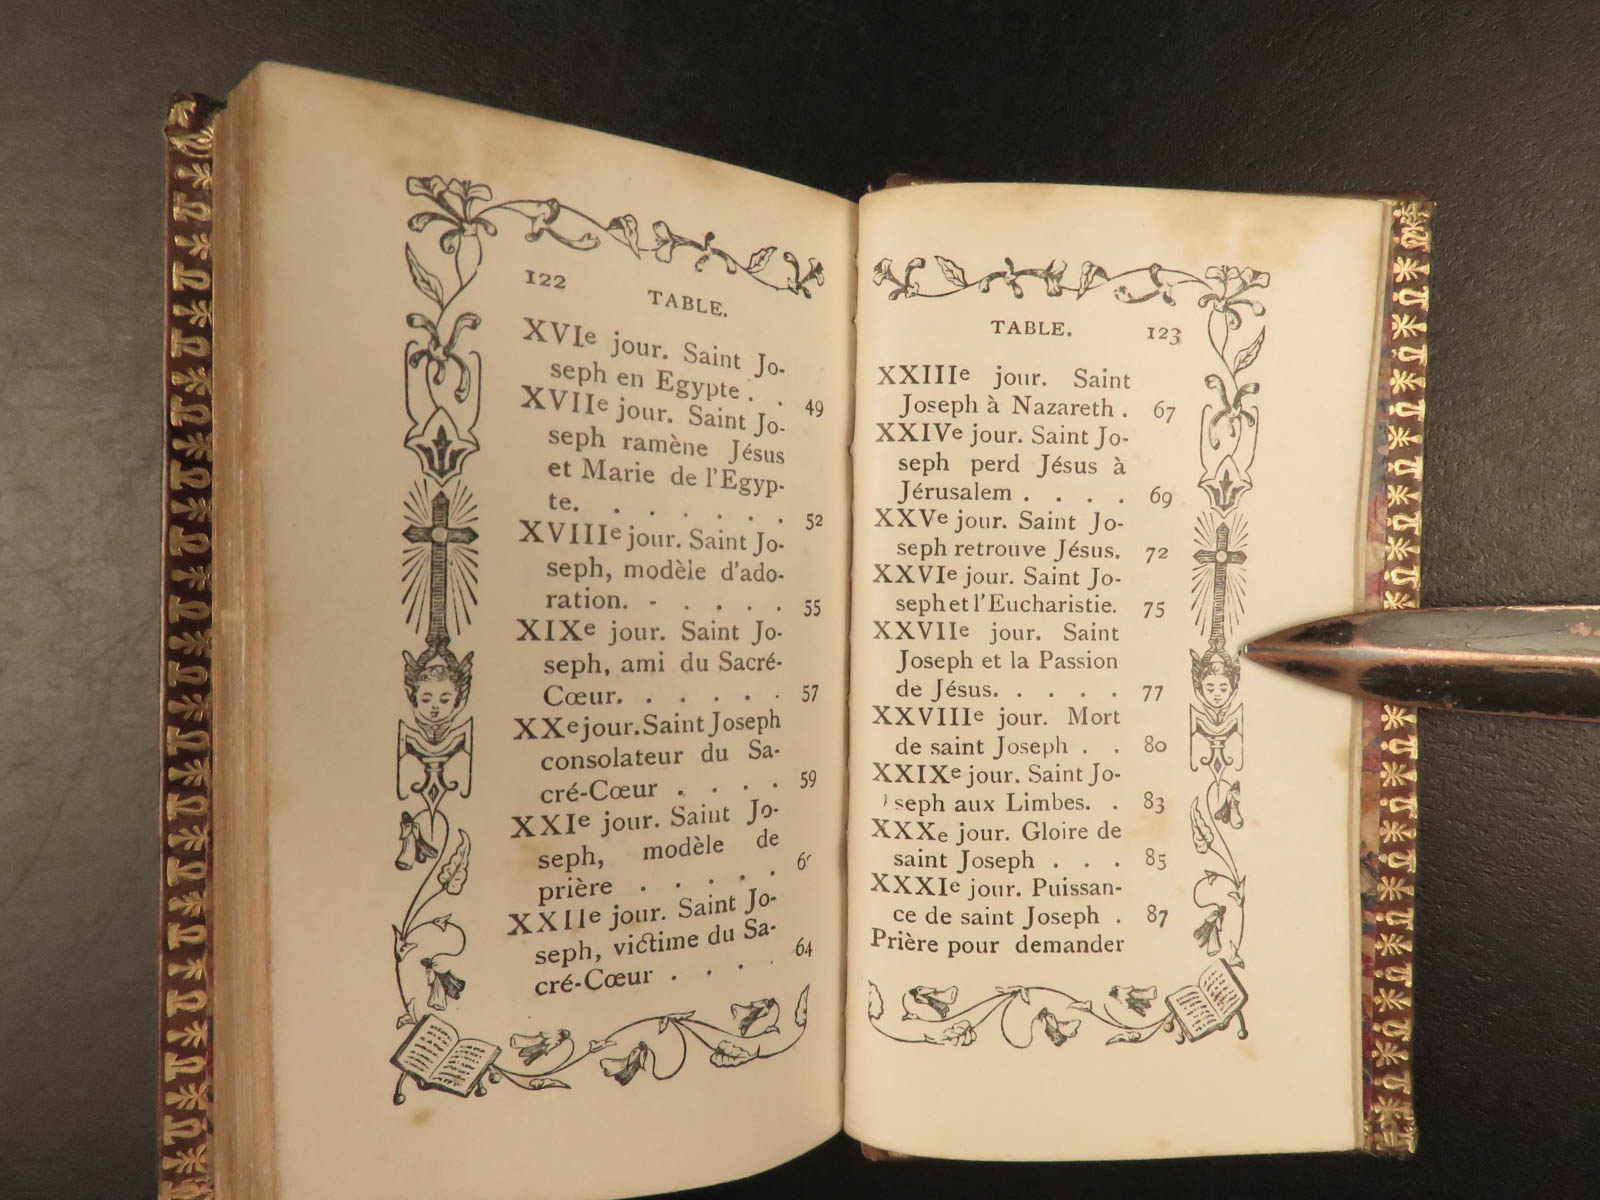 122
TABLE.
XVIe jour. Saint Jo-
seph en Egypte . . 49
XVIIe jour. Saint Jo-
seph ramène Jésus
et Marie de l'Egyp-
te. . . . . . . 52
XVIIIe jour. Saint Jo-
seph, modèle d'ado-
ration. - . . . . 55
XIXe jour. Saint Jo-
seph, ami du Sacré-
Cœur. . . . . . 57
XXe jour. Saint Joseph
consolateur du Sa-
cré-Cœur . . . . 59
XXIe jour. Saint Jo-
seph, modèle de
prière . . . . .
XXIIe jour. Saint Jo-
seph, victime du Sa-
cré-Cœur . . . . 64
TABLE. 123
XXIIIe jour. Saint
Joseph à Nazareth . 67
XXIVe jour. Saint Jo-
seph perd Jésus à
Jérusalem . . . . 69
XXVe jour. Saint Jo-
seph retrouve Jésus. 72
XXVIe jour. Saint Jo-
seph et l'Eucharistie. 75
XXVIIe jour. Saint
Joseph et la Passion
de Jésus. . . . . 77
XXVIIIe jour. Mort
de saint Joseph . . 80
XXIXe jour. Saint Jo-
seph aux Limbes. . 83
XXXe jour. Gloire de
saint Joseph . . . 85
XXXIe jour. Puissan-
ce de saint Joseph . 87
Prière pour demander